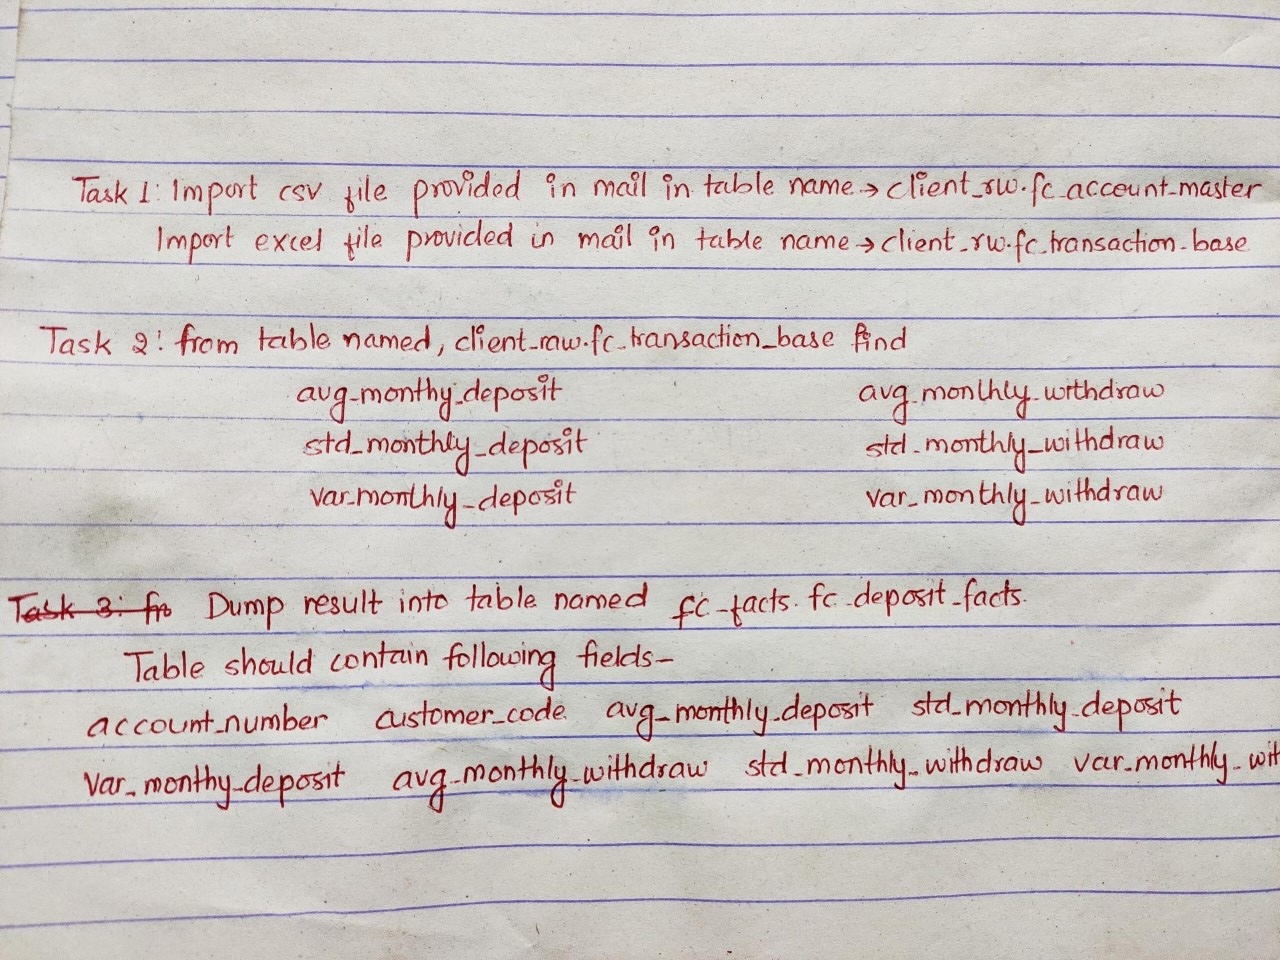 Task 1: Import csv file provided in mail in table name → client_rw.fc_account_master
Import excel file provided in mail in table name → client_rw.fc_transaction_base
Task 2: from table named, client_raw.fc_transaction_base find
avg_monthy_deposit avg_monthly_withdraw
std_monthly_deposit std_monthly_withdraw
var_monthly_deposit var_monthly_withdraw
Task 3: fro Dump result into table named fc_facts.fc_deposit_facts.
Table should contain following fields-
account_number customer_code avg_monthly_deposit std_monthly_deposit
Var_monthy_deposit avg_monthly_withdraw std_monthly_withdraw var_monthly_wit